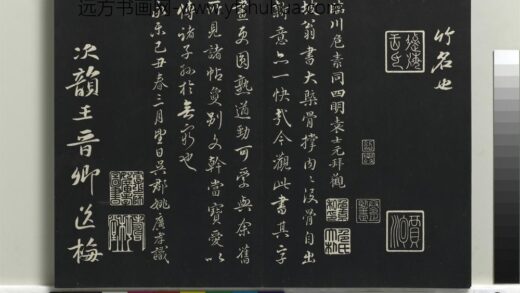 远方书画网-www.yfshuhua.com
竹名也
臨川危素同四明袁士元拜觀
翁書大槩骨撐肉肉没骨自出
新意亦一快哉今觀此書其字
畫更圓熟遒勁可愛與余舊
見諸帖夐别文幹當寶愛以
傳諸子孫於無窮也
永樂己丑春三月望日吳郡姚廣孝識
次韻王晉卿送梅